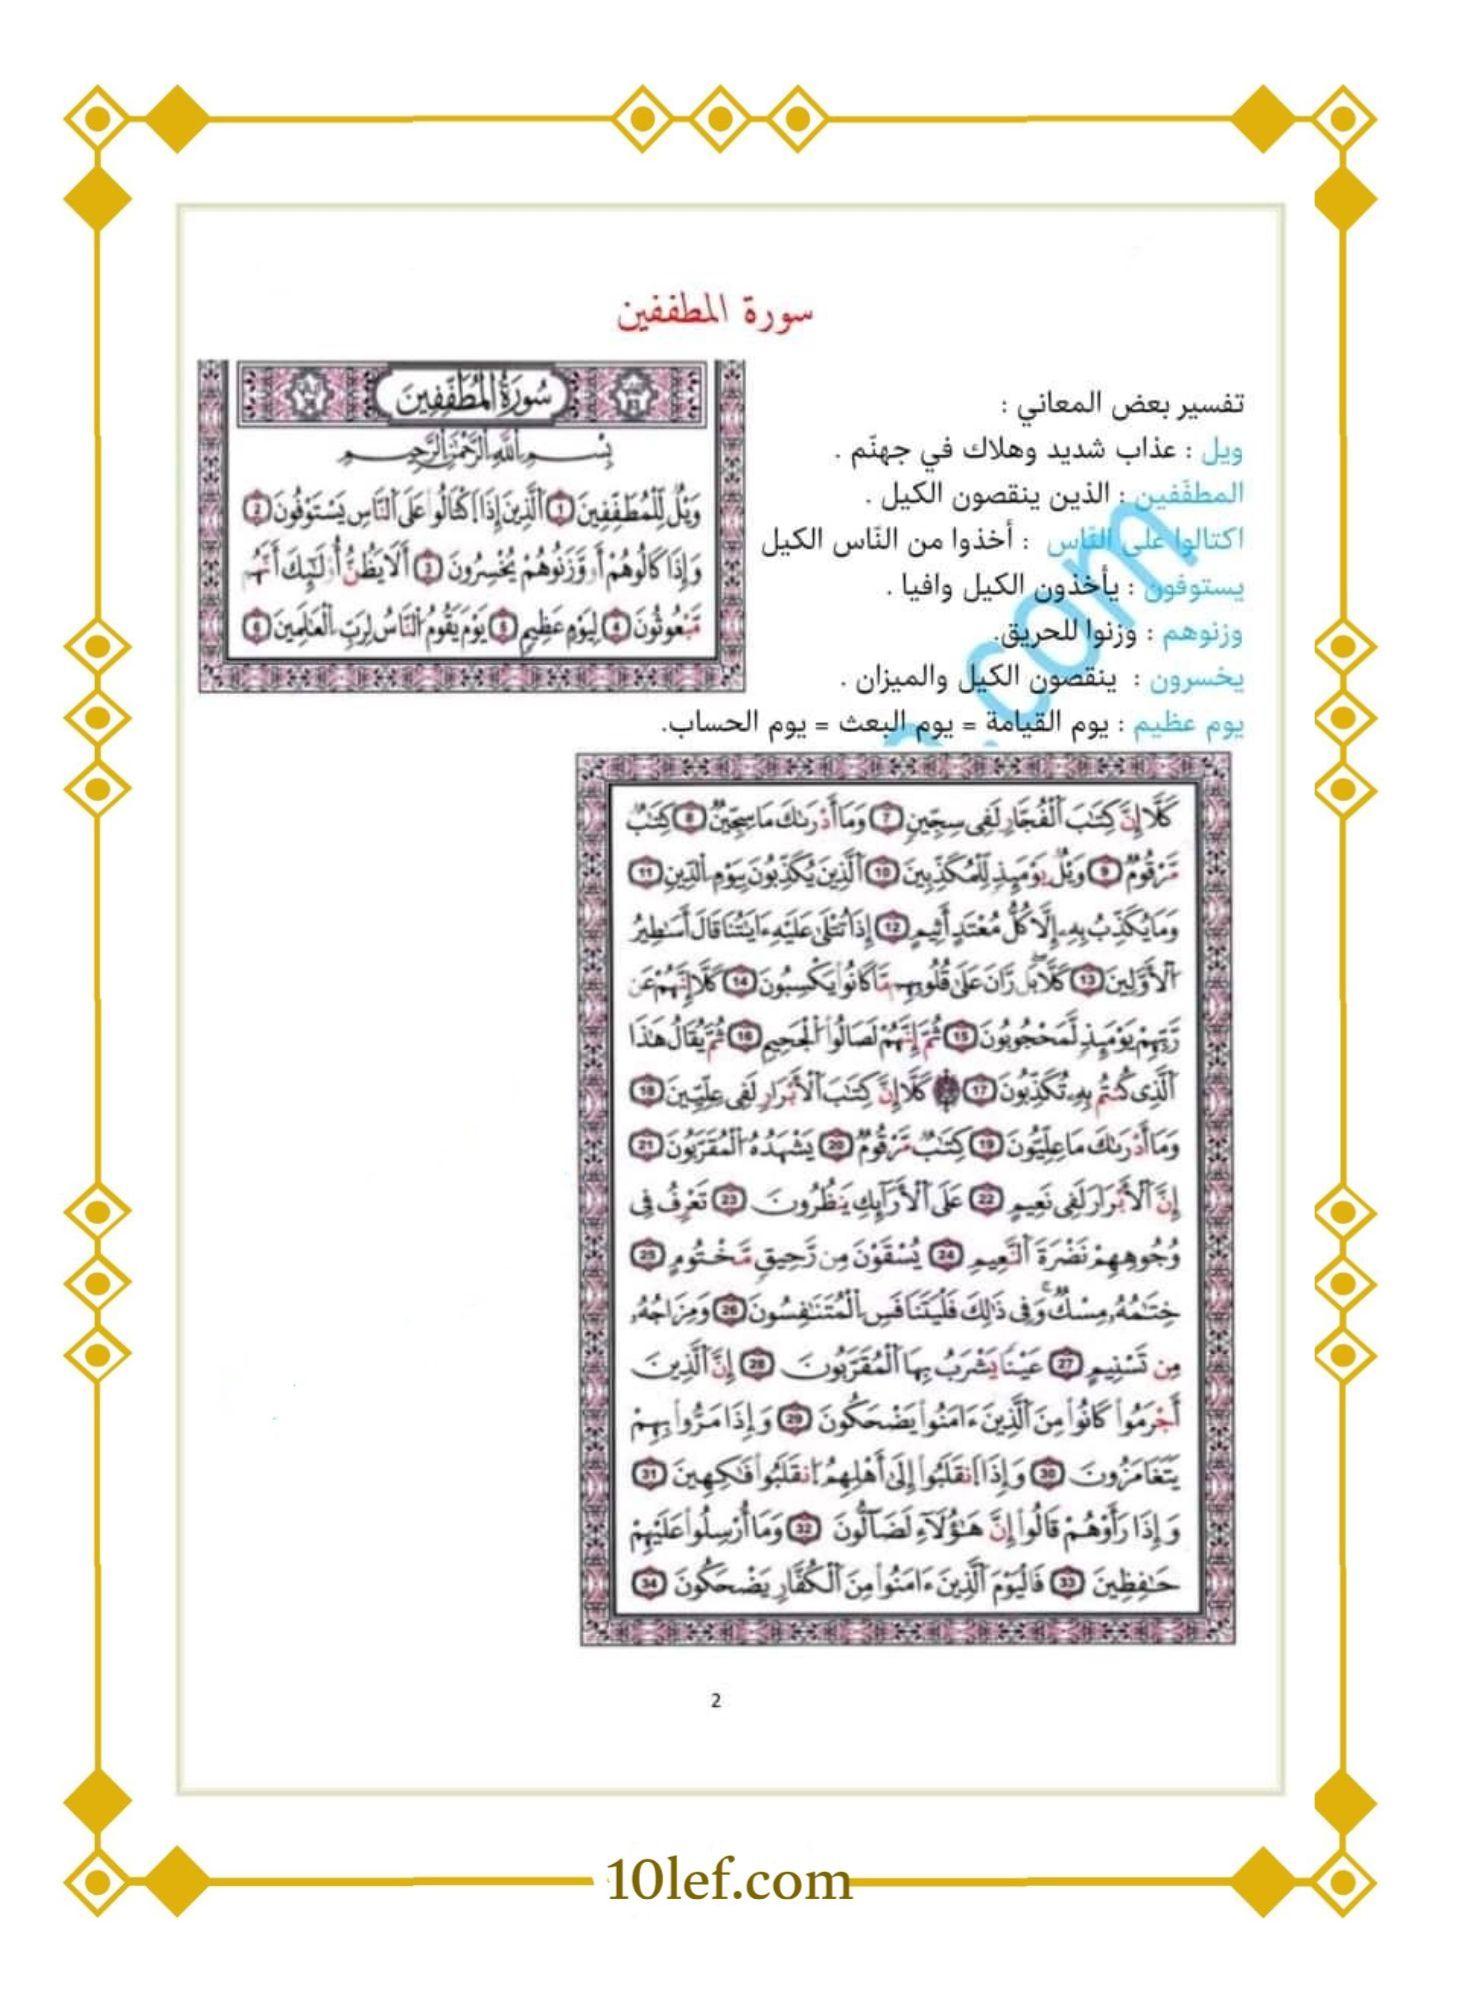 سورة المطففين
سُورَةُ الْمُطَفِّفِينَ
بِسْمِ اللَّهِ الرَّحْمَٰنِ الرَّحِيمِ
وَيْلٌ لِّلْمُطَفِّفِينَ 1 الَّذِينَ إِذَا اكْتَالُوا عَلَى النَّاسِ يَسْتَوْفُونَ 2
وَإِذَا كَالُوهُمْ أَو وَّزَنُوهُمْ يُخْسِرُونَ 3 أَلَا يَظُنُّ أُوْلَٰئِكَ أَنَّهُم
مَّبْعُوثُونَ 4 لِيَوْمٍ عَظِيمٍ 5 يَوْمَ يَقُومُ النَّاسُ لِرَبِّ الْعَٰلَمِينَ 6
تفسير بعض المعاني :
ويل : عذاب شديد وهلاك في جهنّم .
المطفّفين : الذين ينقصون الكيل .
اكتالوا على النّاس : أخذوا من النّاس الكيل
يستوفون : يأخذون الكيل وافيا .
وزنوهم : وزنوا للحريق.
يخسرون : ينقصون الكيل والميزان .
يوم عظيم : يوم القيامة = يوم البعث = يوم الحساب.
.com
كَلَّا إِنَّ كِتَٰبَ الْفُجَّارِ لَفِي سِجِّينٍ 7 وَمَا أَدْرَىٰكَ مَا سِجِّينٌ 8 كِتَٰبٌ
مَّرْقُومٌ 9 وَيْلٌ يَوْمَئِذٍ لِّلْمُكَذِّبِينَ 10 الَّذِينَ يُكَذِّبُونَ بِيَوْمِ الدِّينِ 11
وَمَا يُكَذِّبُ بِهِۦ إِلَّا كُلُّ مُعْتَدٍ أَثِيمٍ 12 إِذَا تُتْلَىٰ عَلَيْهِ ءَايَٰتُنَا قَالَ أَسَٰطِيرُ
الْأَوَّلِينَ 13 كَلَّا بَل رَّانَ عَلَىٰ قُلُوبِهِم مَّا كَانُوا يَكْسِبُونَ 14 كَلَّا إِنَّهُمْ عَن
رَّبِّهِمْ يَوْمَئِذٍ لَّمَحْجُوبُونَ 15 ثُمَّ إِنَّهُمْ لَصَالُوا الْجَحِيمِ 16 ثُمَّ يُقَالُ هَٰذَا
الَّذِي كُنتُم بِهِۦ تُكَذِّبُونَ 17 كَلَّا إِنَّ كِتَٰبَ الْأَبْرَارِ لَفِي عِلِّيِّينَ 18
وَمَا أَدْرَىٰكَ مَا عِلِّيُّونَ 19 كِتَٰبٌ مَّرْقُومٌ 20 يَشْهَدُهُ الْمُقَرَّبُونَ 21
إِنَّ الْأَبْرَارَ لَفِي نَعِيمٍ 22 عَلَى الْأَرَآئِكِ يَنظُرُونَ 23 تَعْرِفُ فِي
وُجُوهِهِمْ نَضْرَةَ النَّعِيمِ 24 يُسْقَوْنَ مِن رَّحِيقٍ مَّخْتُومٍ 25
خِتَٰمُهُۥ مِسْكٌ وَفِي ذَٰلِكَ فَلْيَتَنَافَسِ الْمُتَنَٰفِسُونَ 26 وَمِزَاجُهُۥ
مِن تَسْنِيمٍ 27 عَيْنًا يَشْرَبُ بِهَا الْمُقَرَّبُونَ 28 إِنَّ الَّذِينَ
أَجْرَمُوا كَانُوا مِنَ الَّذِينَ ءَامَنُوا يَضْحَكُونَ 29 وَإِذَا مَرُّوا بِهِمْ
يَتَغَامَزُونَ 30 وَإِذَا انقَلَبُوا إِلَىٰ أَهْلِهِمُ انقَلَبُوا فَٰكِهِينَ 31
وَإِذَا رَأَوْهُمْ قَالُوا إِنَّ هَٰؤُلَآءِ لَضَآلُّونَ 32 وَمَا أُرْسِلُوا عَلَيْهِمْ
حَٰفِظِينَ 33 فَالْيَوْمَ الَّذِينَ ءَامَنُوا مِنَ الْكُفَّارِ يَضْحَكُونَ 34
2
10lef.com